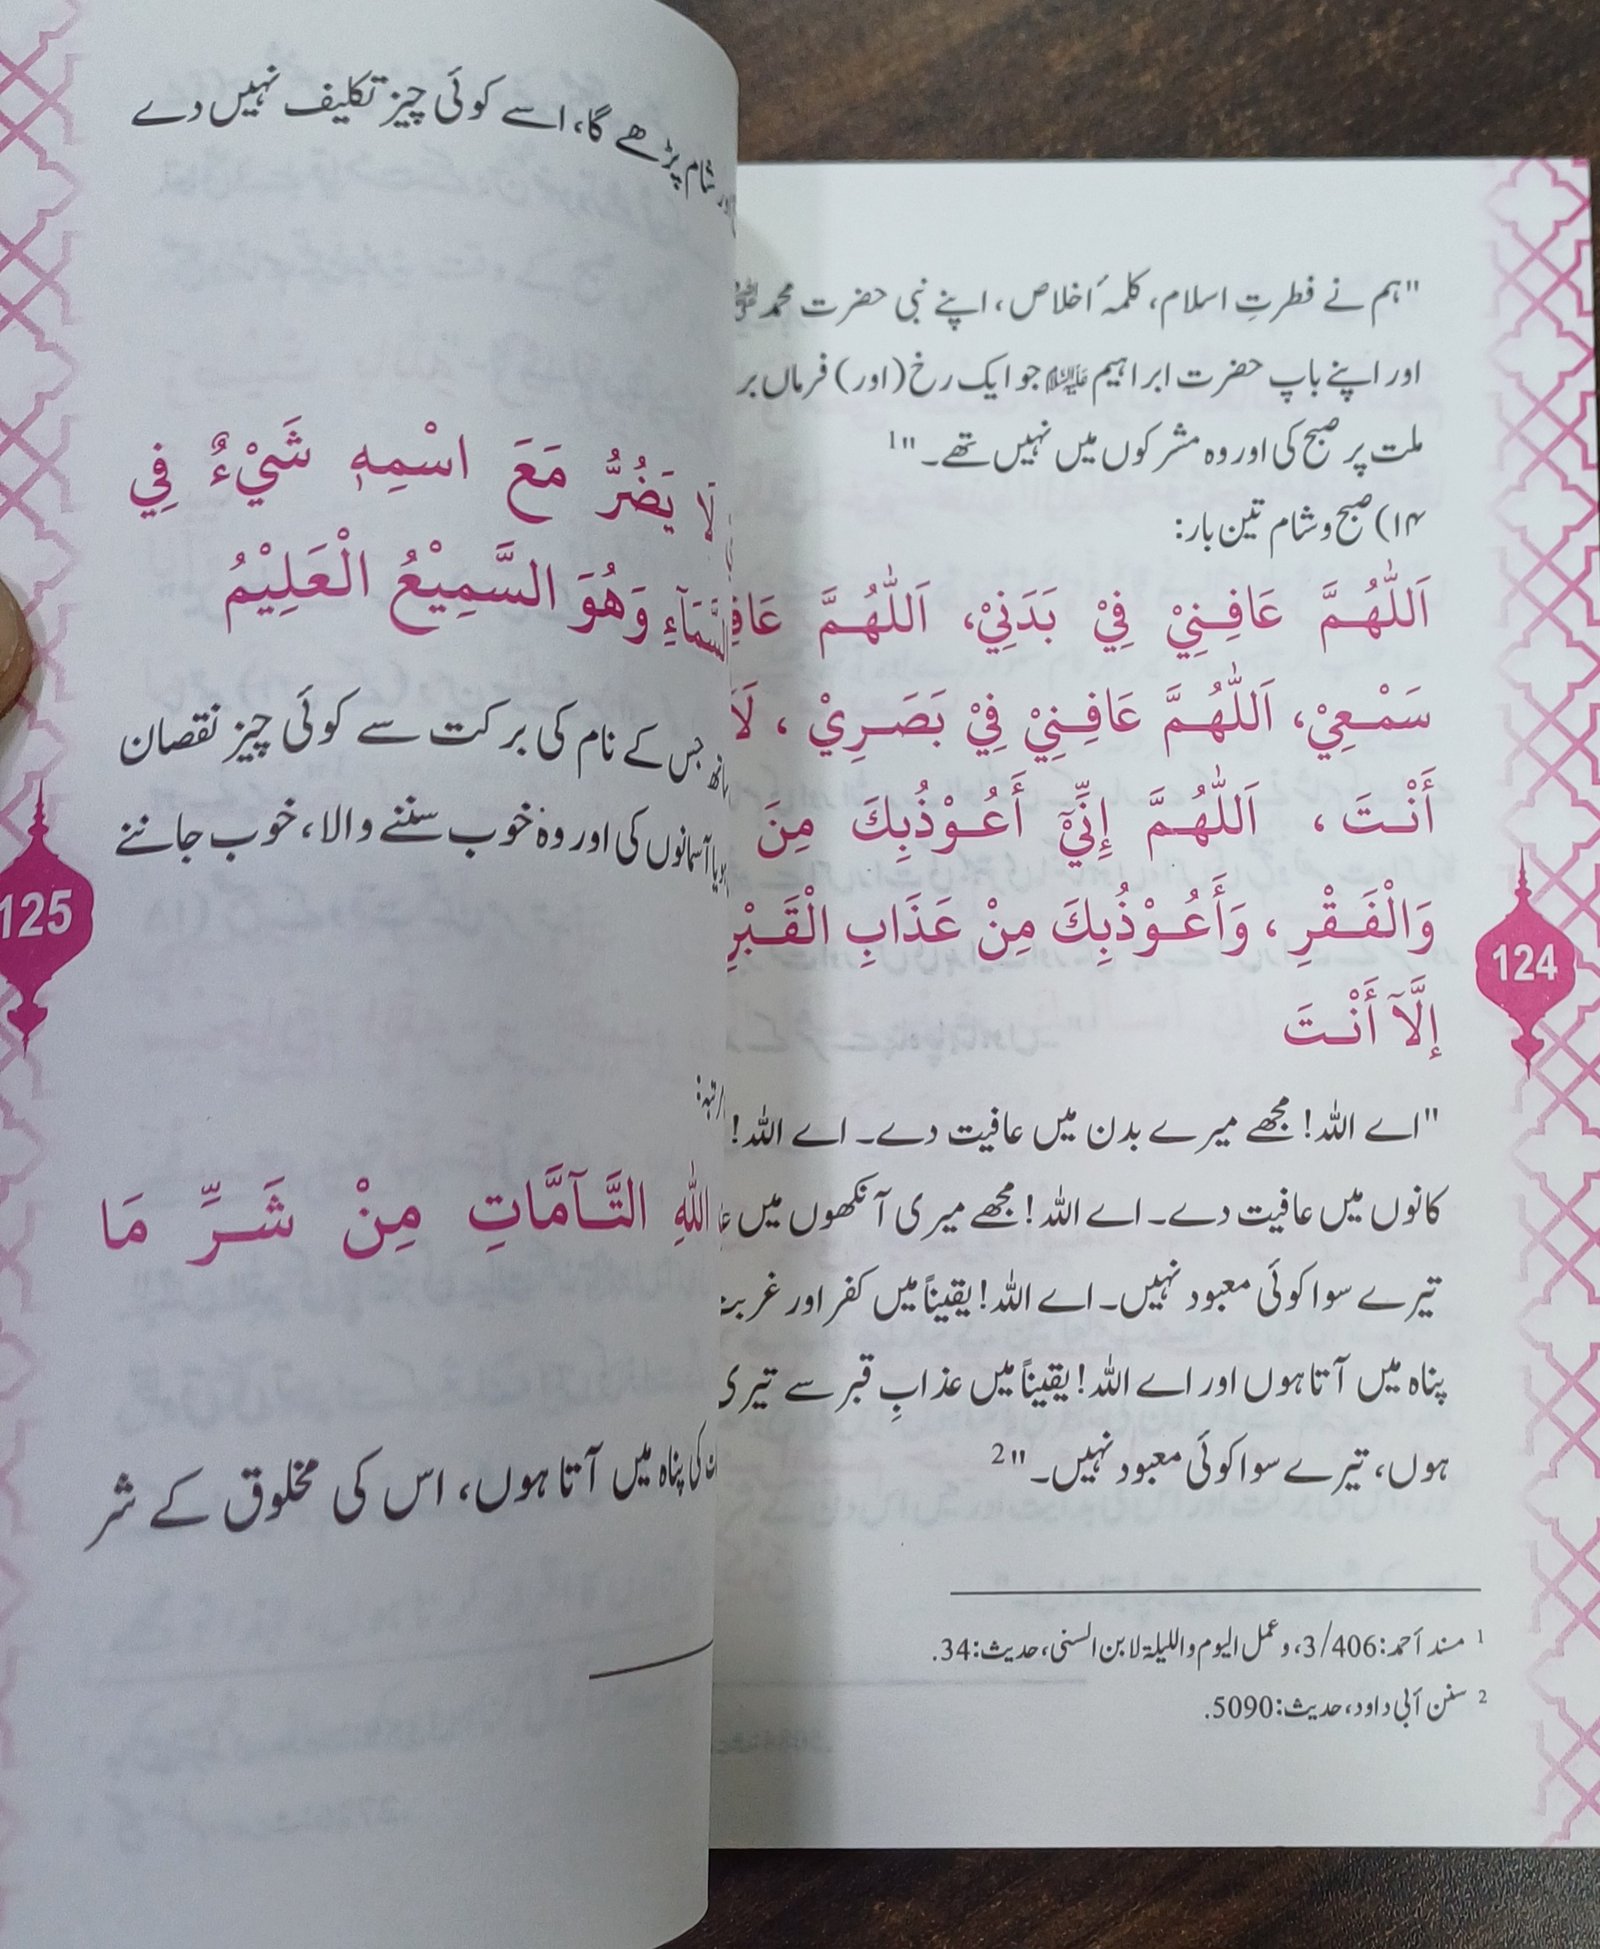 "ہم نے فطرتِ اسلام، کلمہٴ اخلاص، اپنے نبی حضرت محمد ﷺ
اور اپنے باپ حضرت ابراہیم علیہ السلام جو ایک رخ (اور) فرماں بر
ملت پر صبح کی اور وہ مشرکوں میں نہیں تھے۔"1
۱۴) صبح و شام تین بار:
اَللّٰهُمَّ عَافِنِيْ فِيْ بَدَنِيْ، اَللّٰهُمَّ عَافِ
سَمْعِيْ، اَللّٰهُمَّ عَافِنِيْ فِيْ بَصَرِيْ ، لَا
أَنْتَ ، اَللّٰهُمَّ إِنِّيْٓ أَعُوْذُبِكَ مِنَ
وَالْفَقْرِ ، وَأَعُوْذُبِكَ مِنْ عَذَابِ الْقَبْرِ
إلَّآ أَنْتَ
"اے اللہ! مجھے میرے بدن میں عافیت دے۔ اے اللہ!
کانوں میں عافیت دے۔ اے اللہ! مجھے میری آنکھوں میں
تیرے سوا کوئی معبود نہیں۔ اے اللہ! یقیناً میں کفر اور غربت
پناہ میں آتا ہوں اور اے اللہ! یقیناً میں عذابِ قبر سے تیری
ہوں، تیرے سوا کوئی معبود نہیں۔"2
1 مسند أحمد: 3/406، وعمل الیوم واللیلۃ لابن السنی، حدیث: 34.
2 سنن أبی داود، حدیث: 5090.
124
شام پڑھے گا، اسے کوئی چیز تکلیف نہیں دے
لَا يَضُرُّ مَعَ اسْمِهٖ شَيْءٌ فِي
السَّمَآءِ وَهُوَ السَّمِيْعُ الْعَلِيْمُ
جس کے نام کی برکت سے کوئی چیز نقصان
ہو یا آسمانوں کی اور وہ خوب سننے والا، خوب جاننے
اللّٰهِ التَّآمَّاتِ مِنْ شَرِّ مَا
کی پناہ میں آتا ہوں، اس کی مخلوق کے شر
125